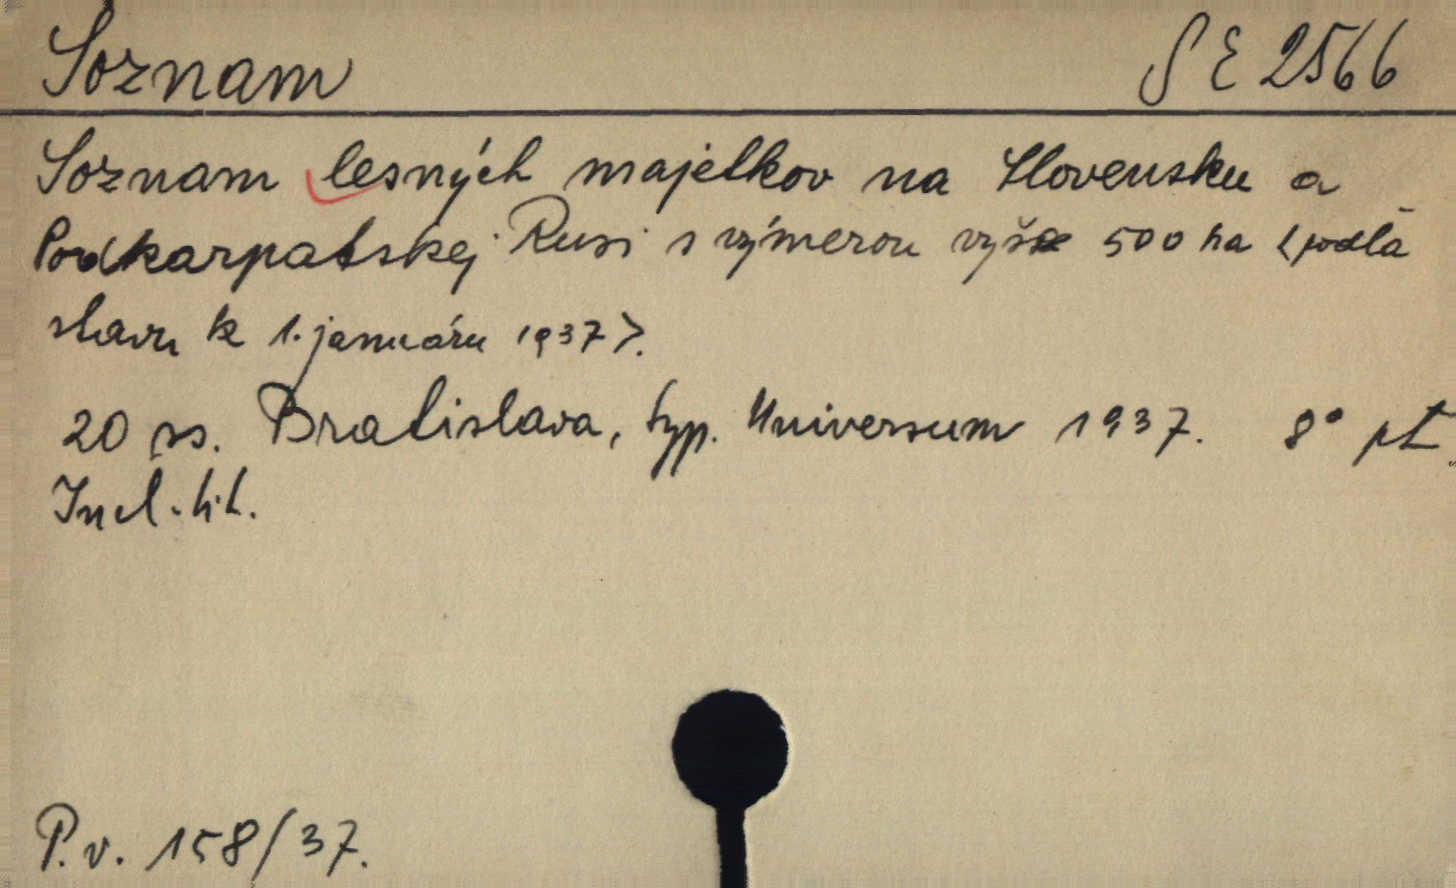 Soznam S E 2566
Soznam lesných majetkov na Slovensku a
Podkarpatskej Rusi s výmerou vyše 500 ha <podla
stavu k 1. januáru 1937>.
20 ss. Bratislava, typ. Universum 1937. 8°
Incl. tit.
P. v. 158/37.